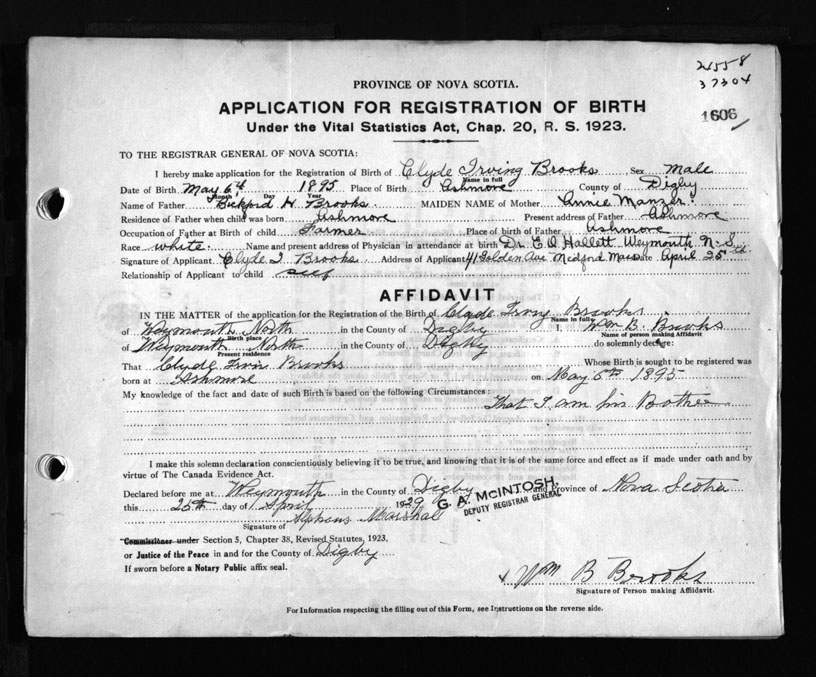 21558
37304
1606
PROVINCE OF NOVA SCOTIA.
APPLICATION FOR REGISTRATION OF BIRTH
Under the Vital Statistics Act, Chap. 20, R. S. 1923.
TO THE REGISTRAR GENERAL OF NOVA SCOTIA:
I hereby make application for the Registration of Birth of Clyde Irving Brooks Sex Male
Name in full
Date of Birth May 6th 1895 Place of Birth Ashmore County of Digby
Month Day Year
Name of Father Bickford H. Brooks MAIDEN NAME of Mother Annie Manzer
Residence of Father when child was born Ashmore Present address of Father Ashmore
Occupation of Father at Birth of child Farmer Place of birth of Father Ashmore
Race white. Name and present address of Physician in attendance at birth Dr. E. O. Hallett Weymouth N. S.
Signature of Applicant Clyde I. Brooks Address of Applicant 41 Golden Ave Medford Mass Date April 25th
Relationship of Applicant to child self
AFFIDAVIT
IN THE MATTER of the application for the Registration of the Birth of Clyde Irving Brooks
Name in full
of Weymouth North in the County of Digby I, Wm B. Brooks
Birth place Name of person making Affidavit
of Weymouth North in the County of Digby do solemnly declare:
Present residence
That Clyde Irvin Brooks Whose Birth is sought to be registered was
born at Ashmore on May 6th 1895
My knowledge of the fact and date of such Birth is based on the following Circumstances:
That I am his Bother
I make this solemn declaration conscientiously believing it to be true, and knowing that it is of the same force and effect as if made under oath and by
virtue of The Canada Evidence Act.
Declared before me at Weymouth in the County of Digby and Province of Nova Scotia
this 25th day of April 1929
G. A. McINTOSH,
DEPUTY REGISTRAR GENERAL
Signature of Alphens Marshal
Commissioner under Section 5, Chapter 38, Revised Statutes, 1923,
or Justice of the Peace in and for the County of Digby
If sworn before a Notary Public affix seal.
x Wm B Brooks
Signature of Person making Affidavit.
For Information respecting the filling out of this Form, see Instructions on the reverse side.